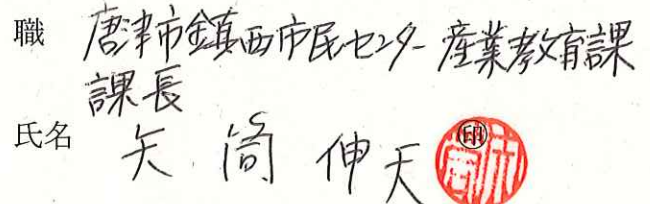 職 唐津市鎮西市民センター 産業教育課
課長
氏名 矢筒 伸天 ㊞